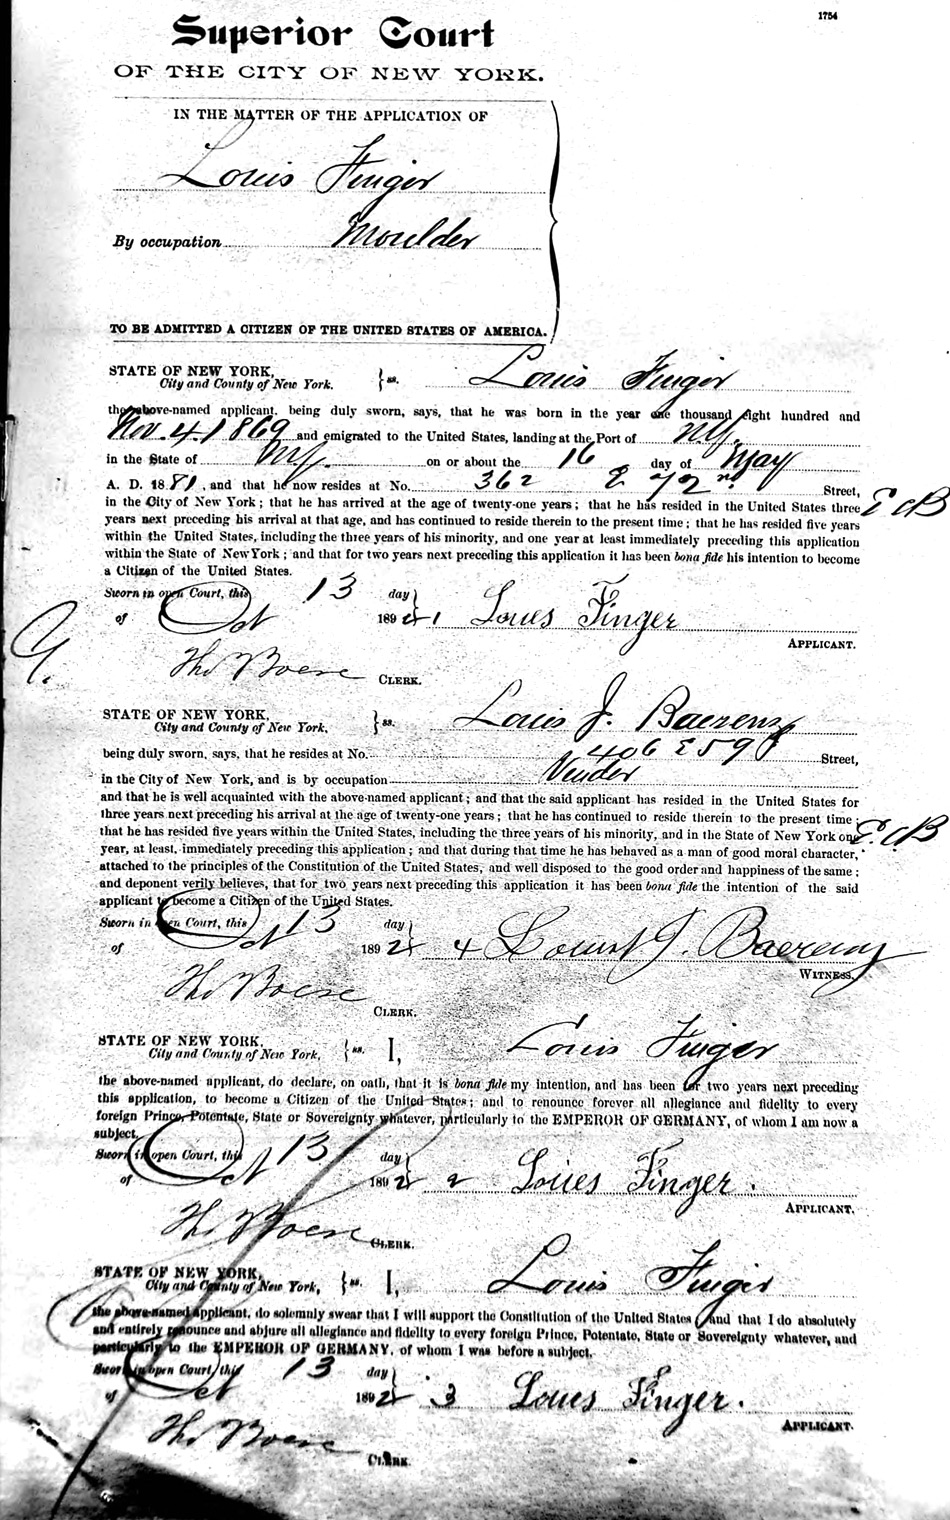 1754
Superior Court
OF THE CITY OF NEW YORK.
IN THE MATTER OF THE APPLICATION OF
Louis Finger
By occupation Moulder
TO BE ADMITTED A CITIZEN OF THE UNITED STATES OF AMERICA.
STATE OF NEW YORK, } ss. Louis Finger
City and County of New York.
the above-named applicant, being duly sworn, says, that he was born in the year one thousand eight hundred and
Nov. 4. 1869 and emigrated to the United States, landing at the Port of N.Y.
in the State of N.Y. on or about the 16 day of May
A. D. 1881, and that he now resides at No. 362 E 72nd Street,
in the City of New York; that he has arrived at the age of twenty-one years; that he has resided in the United States three
years next preceding his arrival at that age, and has continued to reside therein to the present time; that he has resided five years
within the United States, including the three years of his minority, and one year at least immediately preceding this application
within the State of NewYork; and that for two years next preceding this application it has been bona fide his intention to become
a Citizen of the United States.
Sworn in open Court, this 13 day }
of Oct 1892 1 Loues Finger
APPLICANT.
Tho Boese CLERK.
STATE OF NEW YORK, } ss. Louis J. Baerenz
City and County of New York,
being duly sworn, says, that he resides at No. 406 E 59 Street,
in the City of New York, and is by occupation Vender
and that he is well acquainted with the above-named applicant; and that the said applicant has resided in the United States for
three years next preceding his arrival at the age of twenty-one years; that he has continued to reside therein to the present time;
that he has resided five years within the United States, including the three years of his minority, and in the State of New York one
year, at least, immediately preceding this application; and that during that time he has behaved as a man of good moral character,
attached to the principles of the Constitution of the United States, and well disposed to the good order and happiness of the same;
and deponent verily believes, that for two years next preceding this application it has been bona fide the intention of the said
applicant to become a Citizen of the United States.
Sworn in open Court, this 13 day }
of Oct 1892 4 Louis J. Baerenz
WITNESS.
Tho Boese
CLERK.
STATE OF NEW YORK, } ss. I, Louis Finger
City and County of New York,
the above-named applicant, do declare, on oath, that it is bona fide my intention, and has been for two years next preceding
this application, to become a Citizen of the United States; and to renounce forever all allegiance and fidelity to every
foreign Prince, Potentate, State or Sovereignty whatever, particularly to the EMPEROR OF GERMANY, of whom I am now a
subject.
Sworn in open Court, this 13 day }
of Oct 1892 2 Loues Finger.
APPLICANT.
Tho Boese CLERK.
STATE OF NEW YORK, } ss. I, Louis Finger
City and County of New York,
the above-named applicant, do solemnly swear that I will support the Constitution of the United States, and that I do absolutely
and entirely renounce and abjure all allegiance and fidelity to every foreign Prince, Potentate, State or Sovereignty whatever, and
particularly to the EMPEROR OF GERMANY, of whom I was before a subject.
Sworn in open Court, this 13 day }
of Oct 1892 3 Loues Finger.
APPLICANT.
Tho Boese
CLERK.